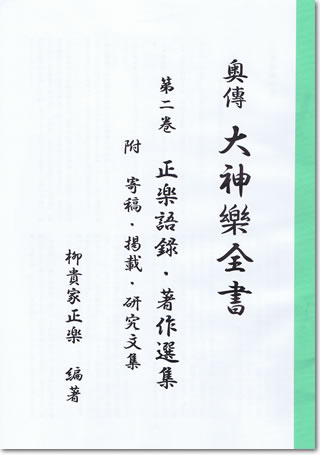 奥傳 大神樂全書
第二巻 正楽語録・著作選集
附 寄稿・掲載・研究文集
柳貴家正楽 編著